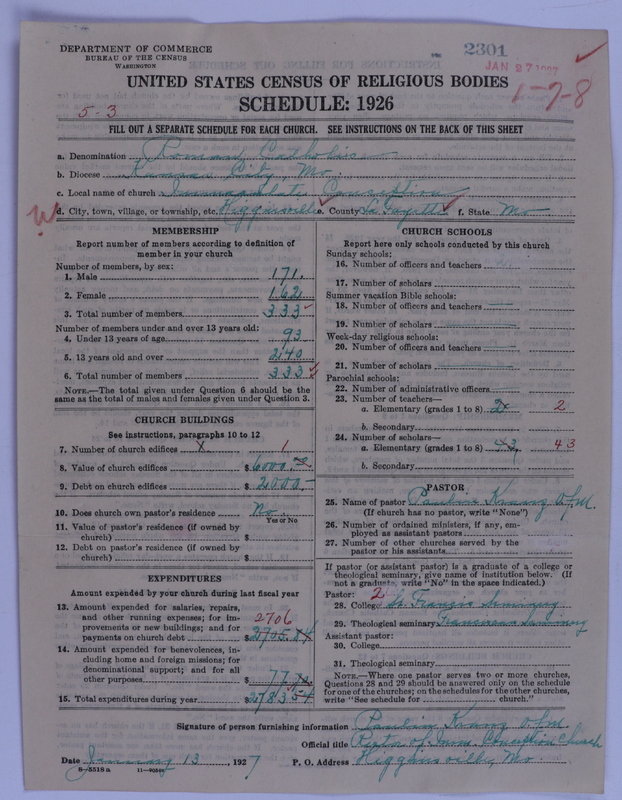 DEPARTMENT OF COMMERCE
BUREAU OF THE CENSUS
WASHINGTON
2301
JAN 27 1927
1-7-8
UNITED STATES CENSUS OF RELIGIOUS BODIES
SCHEDULE: 1926
5-3
FILL OUT A SEPARATE SCHEDULE FOR EACH CHURCH. SEE INSTRUCTIONS ON THE BACK OF THIS SHEET
a. Denomination Roman Catholic
b. Diocese Kansas City, Mo.
c. Local name of church Immaculate Conception
d. City, town, village, or township, etc. Higginsville e. County La Fayette f. State Mo
MEMBERSHIP
Report number of members according to definition of
member in your church
Number of members, by sex:
1. Male 171.
2. Female 162
3. Total number of members 333
Number of members under and over 13 years old:
4. Under 13 years of age 93
5. 13 years old and over 240
6. Total number of members 333
NOTE.—The total given under Question 6 should be
same as the total of males and females given under Question 3.
CHURCH BUILDINGS
See instructions, paragraphs 10 to 12
7. Number of church edifices X. 1
8. Value of church edifices $ 6000.
9. Debt on church edifices $ 2000.-
10. Does church own pastor's residence? No.
Yes or No
11. Value of pastor's residence (if owned by
church) $
12. Debt on pastor's residence (if owned by
church) $
EXPENDITURES
Amount expended by your church during last fiscal year
13. Amount expended for salaries, repairs,
and other running expenses; for im- 2706
provements or new buildings; and for
payments on church debt $ 2705.84
14. Amount expended for benevolences, in-
cluding home and foreign missions; for
denominational support; and for all
other purposes $ 77.
15. Total expenditures during year $ 2783
CHURCH SCHOOLS
Report here only schools conducted by this church
Sunday schools:
16. Number of officers and teachers
17. Number of scholars
Summer vacation Bible schools:
18. Number of officers and teachers
19. Number of scholars
Week-day religious schools:
20. Number of officers and teachers
21. Number of scholars
Parochial schools:
22. Number of administrative officers
23. Number of teachers—
a. Elementary (grades 1 to 8) 2 2
b. Secondary
24. Number of scholars—
a. Elementary (grades 1 to 8) 43 43
b. Secondary
PASTOR
25. Name of pastor Paulin Kranz O.F.M.
(If church has no pastor, write "None")
26. Number of ordained ministers, if any, em-
ployed as assistant pastors
27. Number of other churches served by the
pastor or his assistants
If pastor (or assistant pastor) is a graduate of a college or
theological seminary, give name of institution below. (If
not a graduate, write "No" in the space indicated.)
Pastor: 2
28. College St. Francis Seminary
29. Theological seminary Franciscan Seminary
Assistant pastor:
30. College
31. Theological seminary
NOTE.—Where one pastor serves two or more churches,
Questions 28 and 29 should be answered only on the schedule
for one of the churches; on the schedules for the other churches,
write "See schedule for church."
Signature of person furnishing information Paulin Kranz O.F.M.
Official title Rector of Imm. Conception Church
Date January 13, 1927 P. O. Address Higginsville, Mo.
8-5518a